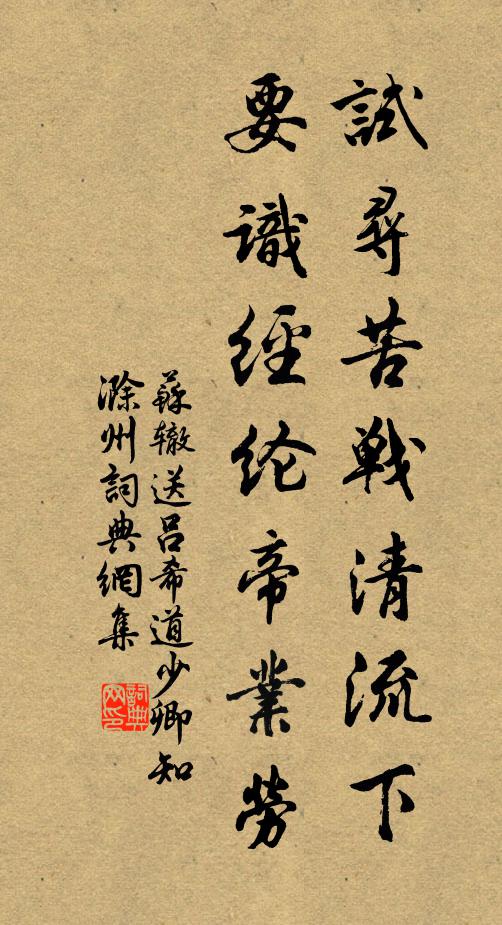 試尋苦戰清流下
要識經纶帝業勞
蘇辙送呂希道少卿知
滁州詞典網集
詞典网印